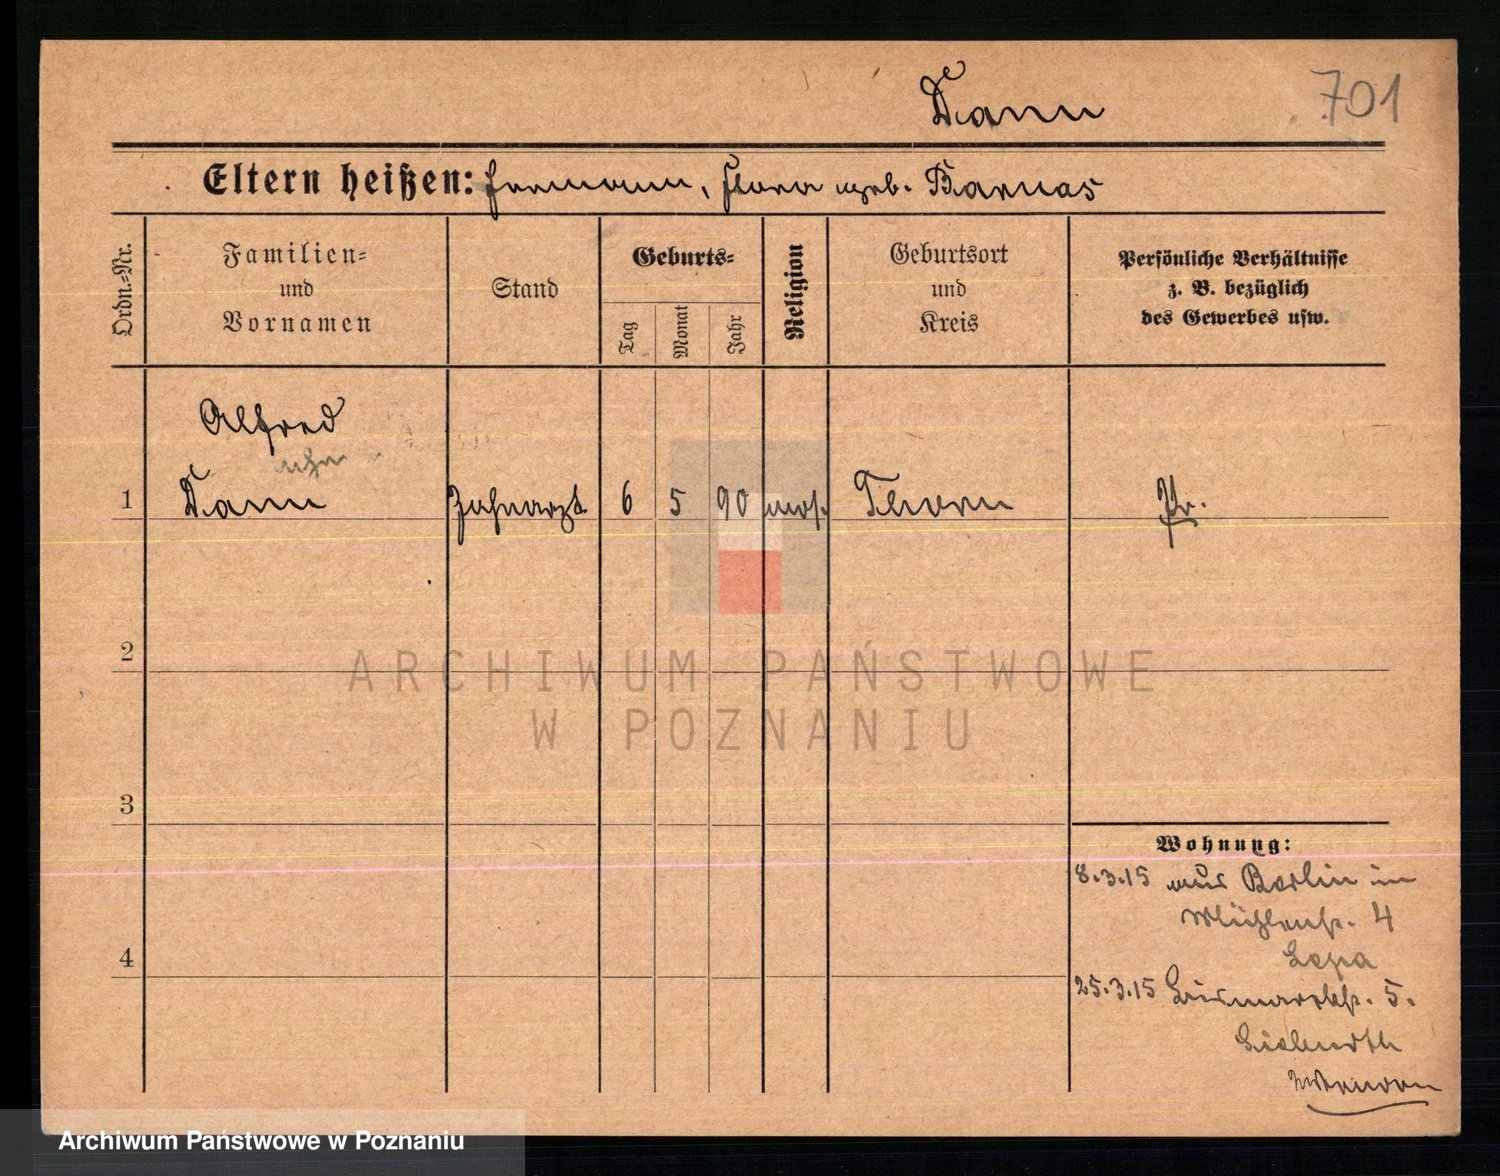 Dann
701
Eltern heißen: Hermann, Flora geb. Barnas
Ordn.-Nr.
Familien-
und
Vornamen
Stand
Geburts-
Tag
Monat
Jahr
Religion
Geburtsort
und
Kreis
Persönliche Verhältnisse
z. B. bezüglich
des Gewerbes usw.
Alfred
1 Dann Zahnarzt 6 5 90 mos. Thorn Pr.
2
3
4
Wohnung:
8.3.15 aus Berlin in
Mühlenstr. 4
25.3.15 Bismarckstr. 5.
ARCHIWUM PAŃSTWOWE
W POZNANIU
Archiwum Państwowe w Poznaniu